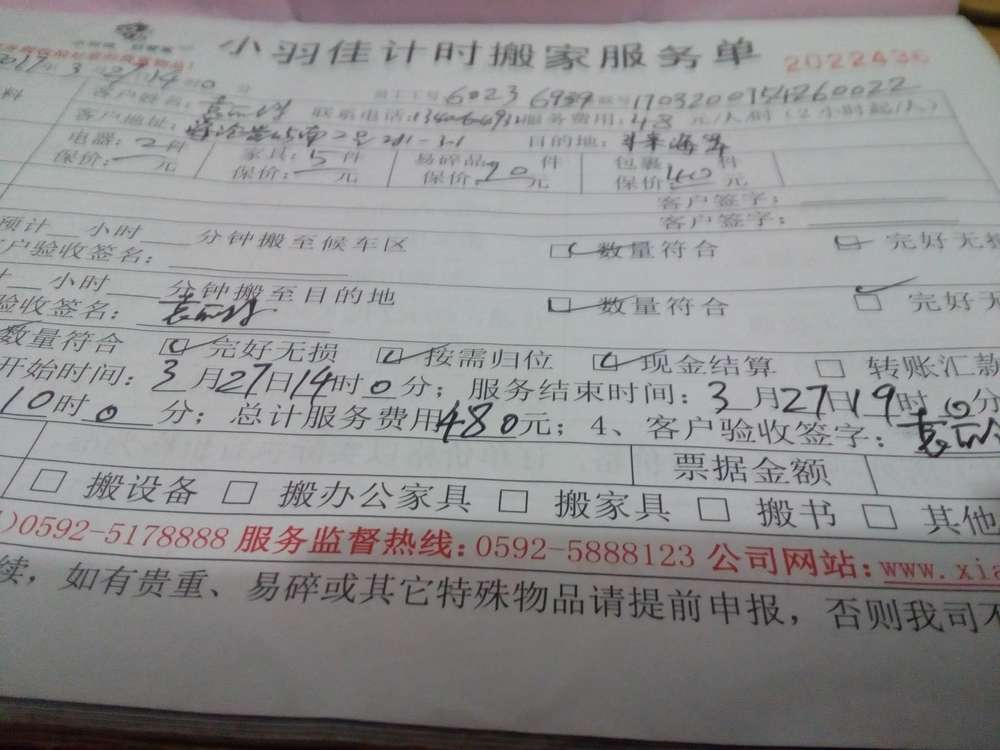 小羽佳计时搬家服务单 2022436
2017年3月27日14时0分
客户姓名: 员工工号 6023 6959 单号 1703200154260022
客户地址: 联系电话: 服务费用:48元/人/时(2小时起/人)
目的地:
电器:2件 家具:5件 易碎品 件 包裹 件
保价: 元 保价: 元 保价: 元 保价: 元
客户签字:
客户签字:
预计 小时 分钟搬至候车区 数量符合 完好无损
客户验收签名:
计 小时 分钟搬至目的地 数量符合 完好无
验收签名:
数量符合 完好无损 按需归位 现金结算 转账汇款
开始时间:3月27日14时0分;服务结束时间:3月27日19时0分
10时0分;总计服务费用480元;4、客户验收签字:
票据金额
搬设备 搬办公家具 搬家具 搬书 其他
)0592-5178888 服务监督热线:0592-5888123 公司网站:www.xia
续,如有贵重、易碎或其它特殊物品请提前申报,否则我司不